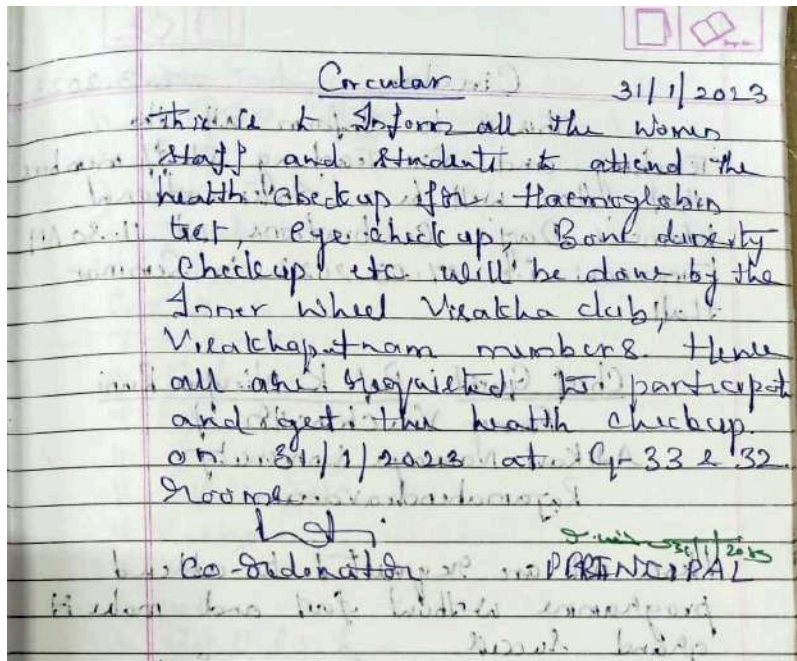 Circular
31/1/2023
this is to Inform all the women
staff and students to attend the
health check up for Haemoglobin
test, eye check up, Bone density
Check up etc will be done by the
Inner Wheel Visakha club,
Visakhapatnam members. Hence
all are requested to participat
and get the health checkup.
on 31/1/2023 at G-33 & 32
rooms
31/1/2023
Co-ordinator PRINCIPAL